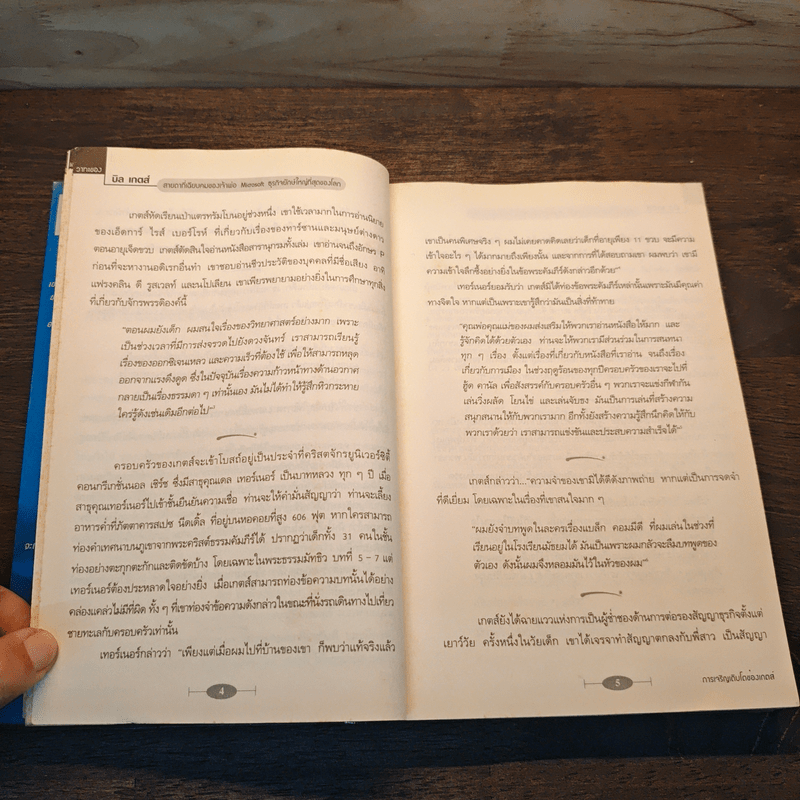 วาทะของ
บิล เกตส์
สายตาที่เฉียบคมของเจ้าพ่อ Microsoft ธุรกิจยักษ์ใหญ่ที่สุดของโลก
เกตส์หัดเรียนเป่าแตรทรัมโบนอยู่ช่วงหนึ่ง เขาใช้เวลามากในการอ่านนิยาย
ของเอ็ดการ์ ไรส์ เบอร์โรห์ ที่เกี่ยวกับเรื่องของทาร์ซานและมนุษย์ต่างดาว
ตอนอายุเจ็ดขวบ เกตส์ตัดสินใจอ่านหนังสือสารานุกรมทั้งเล่ม เขาอ่านจนถึงอักษร P
ก่อนที่จะหางานอดิเรกอื่นทำ เขาชอบอ่านชีวประวัติของบุคคลที่มีชื่อเสียง อาทิ
แฟรงคลิน ดี รูสเวลท์ และนโปเลียน เขาเพียรพยายามอย่างยิ่งในการศึกษาทุกสิ่ง
ที่เกี่ยวกับจักรพรรดิองค์นี้
"ตอนผมยังเด็ก ผมสนใจเรื่องของวิทยาศาสตร์อย่างมาก เพราะ
เป็นช่วงเวลาที่มีการส่งจรวดไปยังดวงจันทร์ เราสามารถเรียนรู้
เรื่องของออกซิเจนเหลว และความเร็วที่ต้องใช้ เพื่อให้สามารถหลุด
ออกจากแรงดึงดูด ซึ่งในปัจจุบันเรื่องความก้าวหน้าทางด้านอวกาศ
กลายเป็นเรื่องธรรมดา ๆ เท่านั้นเอง มันไม่ได้ทำให้รู้สึกหิวกระหาย
ใคร่รู้ดังเช่นเดิมอีกต่อไป"
ครอบครัวของเกตส์จะเข้าโบสถ์อยู่เป็นประจำที่คริสตจักรยูนิเวอร์ซิตี้
คอนกรีเกชั่นนอล เชิร์ช ซึ่งมีสาธุคุณเดล เทอร์เนอร์ เป็นบาทหลวง ทุก ๆ ปี เมื่อ
สาธุคุณเทอร์เนอร์ไปเข้าชั้นยืนยันความเชื่อ ท่านจะให้คำมั่นสัญญาว่า ท่านจะเลี้ยง
อาหารค่ำที่ภัตตาคารสเปซ นีดเดิ้ล ที่อยู่บนหอคอยที่สูง 606 ฟุต หากใครสามารถ
ท่องคำเทศนาบนภูเขาจากพระคริสต์ธรรมคัมภีร์ได้ ปรากฏว่าเด็กทั้ง 31 คนในชั้น
ท่องอย่างตะกุกตะกักและติดขัดบ้าง โดยเฉพาะในพระธรรมมัทธิว บทที่ 5 – 7 แต่
เทอร์เนอร์ต้องประหลาดใจอย่างยิ่ง เมื่อเกตส์สามารถท่องข้อความบทนั้นได้อย่าง
คล่องแคล่วไม่มีที่ผิด ทั้ง ๆ ที่เขาท่องจำข้อความดังกล่าวในขณะที่นั่งรถเดินทางไปเที่ยว
ชายทะเลกับครอบครัวเท่านั้น
เทอร์เนอร์กล่าวว่า "เพียงแต่เมื่อผมไปที่บ้านของเขา ก็พบว่าแท้จริงแล้ว
4
เขาเป็นคนพิเศษจริง ๆ ผมไม่เคยคาดคิดเลยว่าเด็กที่อายุเพียง 11 ขวบ จะมีความ
เข้าใจอะไร ๆ ได้มากมายถึงเพียงนั้น และจากการที่ได้สอบถามเขา ผมพบว่า เขามี
ความเข้าใจลึกซึ้งอย่างยิ่งในข้อพระคัมภีร์ดังกล่าวอีกด้วย"
เทอร์เนอร์ยอมรับว่า เกตส์มิได้ท่องข้อพระคัมภีร์เหล่านั้นเพราะมันมีคุณค่า
ทางจิตใจ หากแต่เป็นเพราะเขารู้สึกว่ามันเป็นสิ่งที่ท้าทาย
"คุณพ่อคุณแม่ของผมส่งเสริมให้พวกเราอ่านหนังสือให้มาก และ
รู้จักคิดได้ด้วยตัวเอง ท่านจะให้พวกเรามีส่วนร่วมในการสนทนา
ทุก ๆ เรื่อง ตั้งแต่เรื่องที่เกี่ยวกับหนังสือที่เราอ่าน จนถึงเรื่อง
เกี่ยวกับการเมือง ในช่วงฤดูร้อนของทุกปีครอบครัวของเราจะไปที่
ฮู้ด คานัล เพื่อสังสรรค์กับครอบครัวอื่น ๆ พวกเราจะแข่งกีฬากัน
เล่นวิ่งผลัด โยนไข่ และเล่นจับธง มันเป็นการเล่นที่สร้างความ
สนุกสนานให้กับพวกเรามาก อีกทั้งยังสร้างความรู้สึกนึกคิดให้กับ
พวกเราด้วยว่า เราสามารถแข่งขันและประสบความสำเร็จได้"
เกตส์กล่าวว่า..."ความจำของเขามิได้ดีดังภาพถ่าย หากแต่เป็นการจดจำ
ที่ดีเยี่ยม โดยเฉพาะในเรื่องที่เขาสนใจมาก ๆ
"ผมยังจำบทพูดในละครเรื่องแบล็ก คอมมีดี ที่ผมเล่นในช่วงที่
เรียนอยู่ในโรงเรียนมัธยมได้ มันเป็นเพราะผมกลัวจะลืมบทพูดของ
ตัวเอง ดังนั้นผมจึงหลอมมันไว้ในหัวของผม"
เกตส์ยังได้ฉายแววแห่งการเป็นผู้ช่ำชองด้านการต่อรองสัญญาธุรกิจตั้งแต่
เยาว์วัย ครั้งหนึ่งในวัยเด็ก เขาได้เจรจาทำสัญญาตกลงกับพี่สาว เป็นสัญญา
5
การเจริญเติบโตของเกตส์